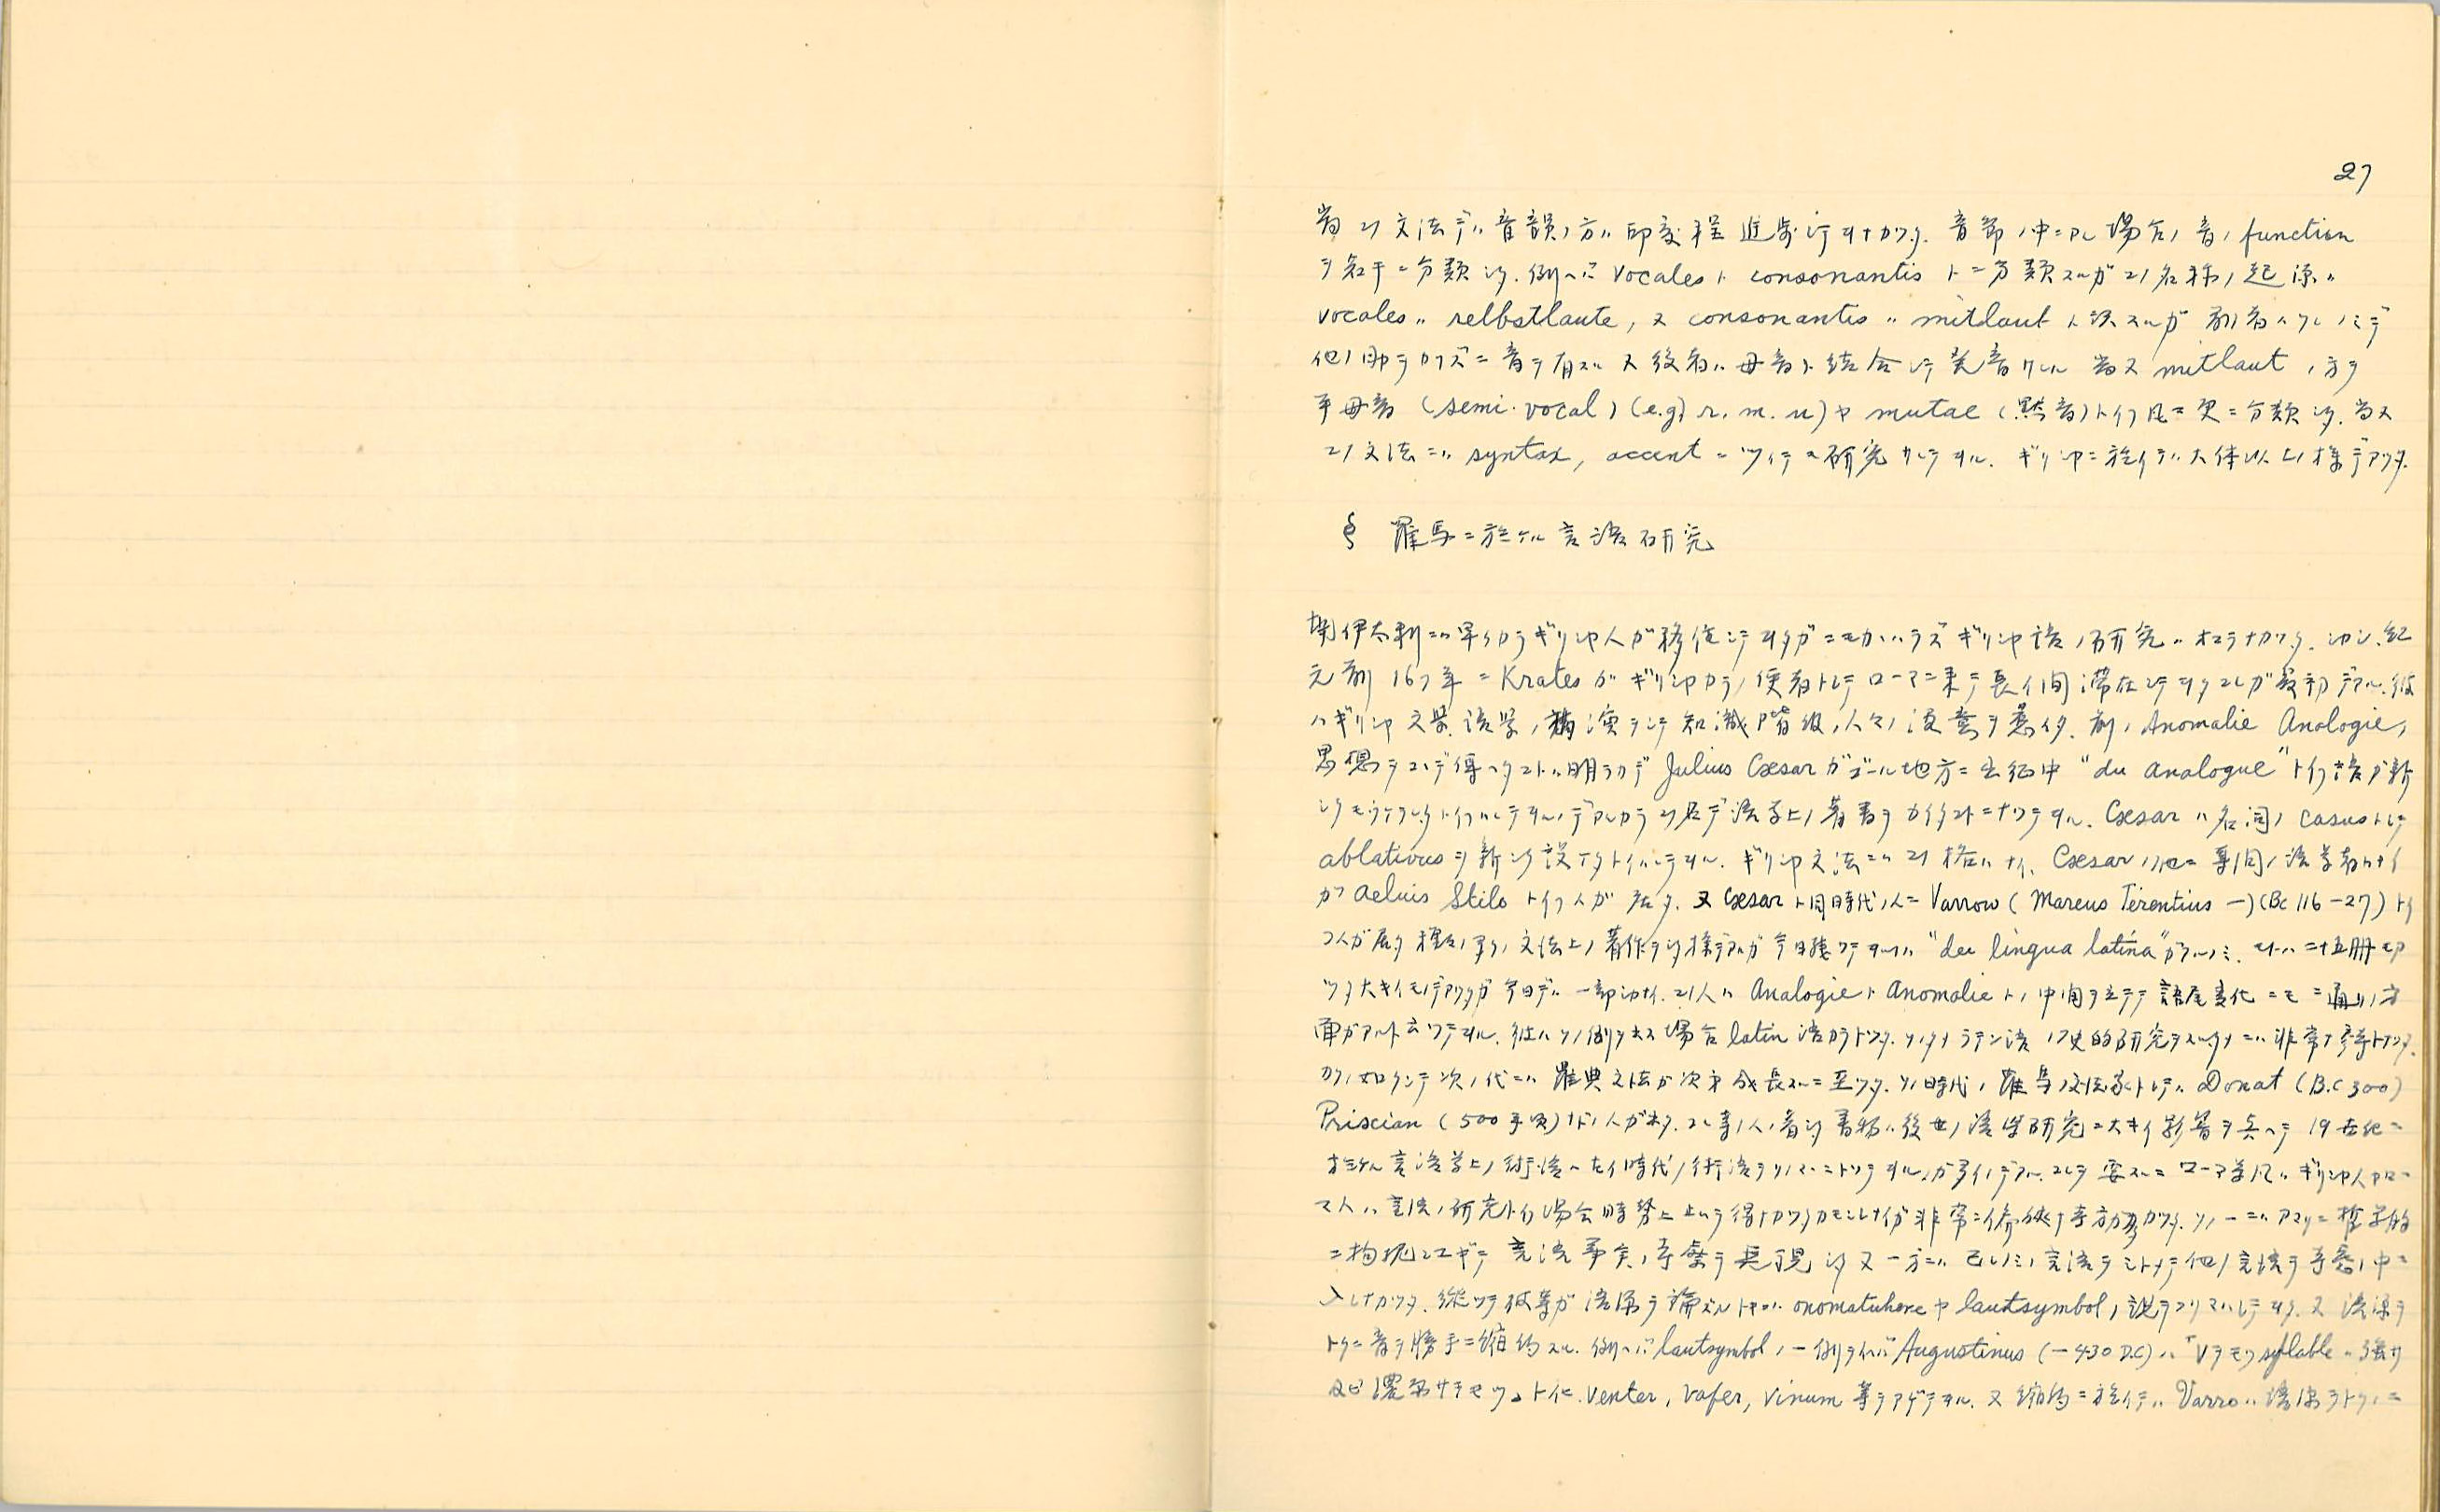 27
尚コノ文法デハ音韻ノ方ハ印度程進歩シテヰナカッタ. 音節ノ中ニアル場合ノ音ノ function
ヲ 分類シタ. 例ヘバ vocales ト consonantis トニ分類スルガコノ名称ノ起源ハ
vocales ハ selbstlaute, 又 consonantis ハ mitlaut ト訳スルガ前者ハソレノミデ
他ノ助ヲカラズニ音ヲ有スル 又後者ハ母音ト結合シテ発音サレル 尚又 mitlaut ノ方ヲ
半母音 (semi-vocal) (e.g) r. m. n) ヤ mutae (黙音)トイフ風ニ更ニ分類シタ. 尚又
コノ文法ニハ syntax, accent ニツイテモ研究サレテヰル. ギリシヤニ於イテハ大体以上ノ様デアッタ.
§ 羅馬ニ於ケル言語研究
伊太利ニハ早クカラギリシヤ人ガ移住シテヰタガニモカハラズギリシヤ語ノ研究ハオコラナカッタ. シカシ, 紀
元前 167年ニ Krates ガギリシヤカラノ使者トシテローマニ来テ長イ間滞在シテヰタコレガ最初デアル. 彼
ハギリシヤ文学, 語学ノ講演ヲシテ知識階級ノ人々ノ注意ヲ惹イタ. 前ノ Anomalie Analogie,
思想ヲコヽデ傳ヘタコトハ明ラカデ Julius Cæsar ガゴール地方ニ出征中 "du analogue" トイフ語ガ新
シクモウケラレタトイハレテヰルノデアルカラコノ名デ語学上ノ著書ヲカイタコトニナッテヰル. Cæsar ハ名詞ノ casus トシテ
ablativus ヲ新シク設ケタトイハレテヰル. ギリシヤ文法ニハコノ格ハナイ. Cæsar ノ他ニ専門ノ語学者ハナイ
ガ Aeluis Stilo トイフ人ガ在タ. 又 Cæsar ト同時代ノ人ニ Varrow (Marcus Terentius —) (Bc 116–27) トイ
フ人ガ居タ 種々ノ 文法上ノ著作ヲシタ様デアルガ今日残ッテヰルノハ "deu lingua latina" ガアルノミ. ソレハ二十五冊モア
ッタ大キイモノデアッタガ今日デハ一部シカナイ. コノ人ハ Analogie ト Anomalie トノ中間ヲ立テテ語尾変化ニモ二通リノ方
面ガアルト云ッテヰル. 彼ハソノ例ヲ出ス場合 latin 語カラトッタ. ソノタメラテン語ノ史的研究ヲスルタメニハ非常ナ参考トナッタ.
カクノ如クシテ次ノ代ニハ羅典文法ガ次第成長スルニ至ッタ. ソノ時代ノ羅馬ノ文法家トシテハ Donat (B.C 300)
Priscian (500年頃) ナドノ人ガヰタ. コレ等ノ人ノ著シタ書物ハ後世ノ語学研究ニ大キイ影響ヲ与ヘテ 19世紀ニ
於ケル言語学上ノ術語ハ 時代ノ術語ヲソノマヽニトッテヰルノガ多イノデアル. コレヲ要スルニローマ ギリシヤ人ヤロー
マ人ハ言語ノ研究トイフ場合時勢上止ムヲ得ナカッタカモシレナイガ非常ニ 方ガ多カッタ. ソノ一ニハアマリニ哲学的
ニ拘泥シスギテ言語事実ノ ヲ シタ又一方ニハ己レノミノ言語ヲミトメテ他ノ言語ヲ考慮ノ中ニ
入レナカッタ. 従ッテ彼等ガ語源ヲ論ズルトキニハ onomatuhere ヤ lautsymbol ノ説ヲフリマハシテヰタ. 又語源ヲ
トクニ音ヲ勝手ニ縮約スル. 例ヘバ lautsymbol ノ一例ヲイヘバ Augustinus (–430 D.C) ハ「Vヲモツ syllable ハ強サ
及ビ サヲモツ」ト化. venter, vafer, vinum 等ヲアゲテヰル. 又縮約ニ於イテハ Varro ハ語源ヲトクノニ